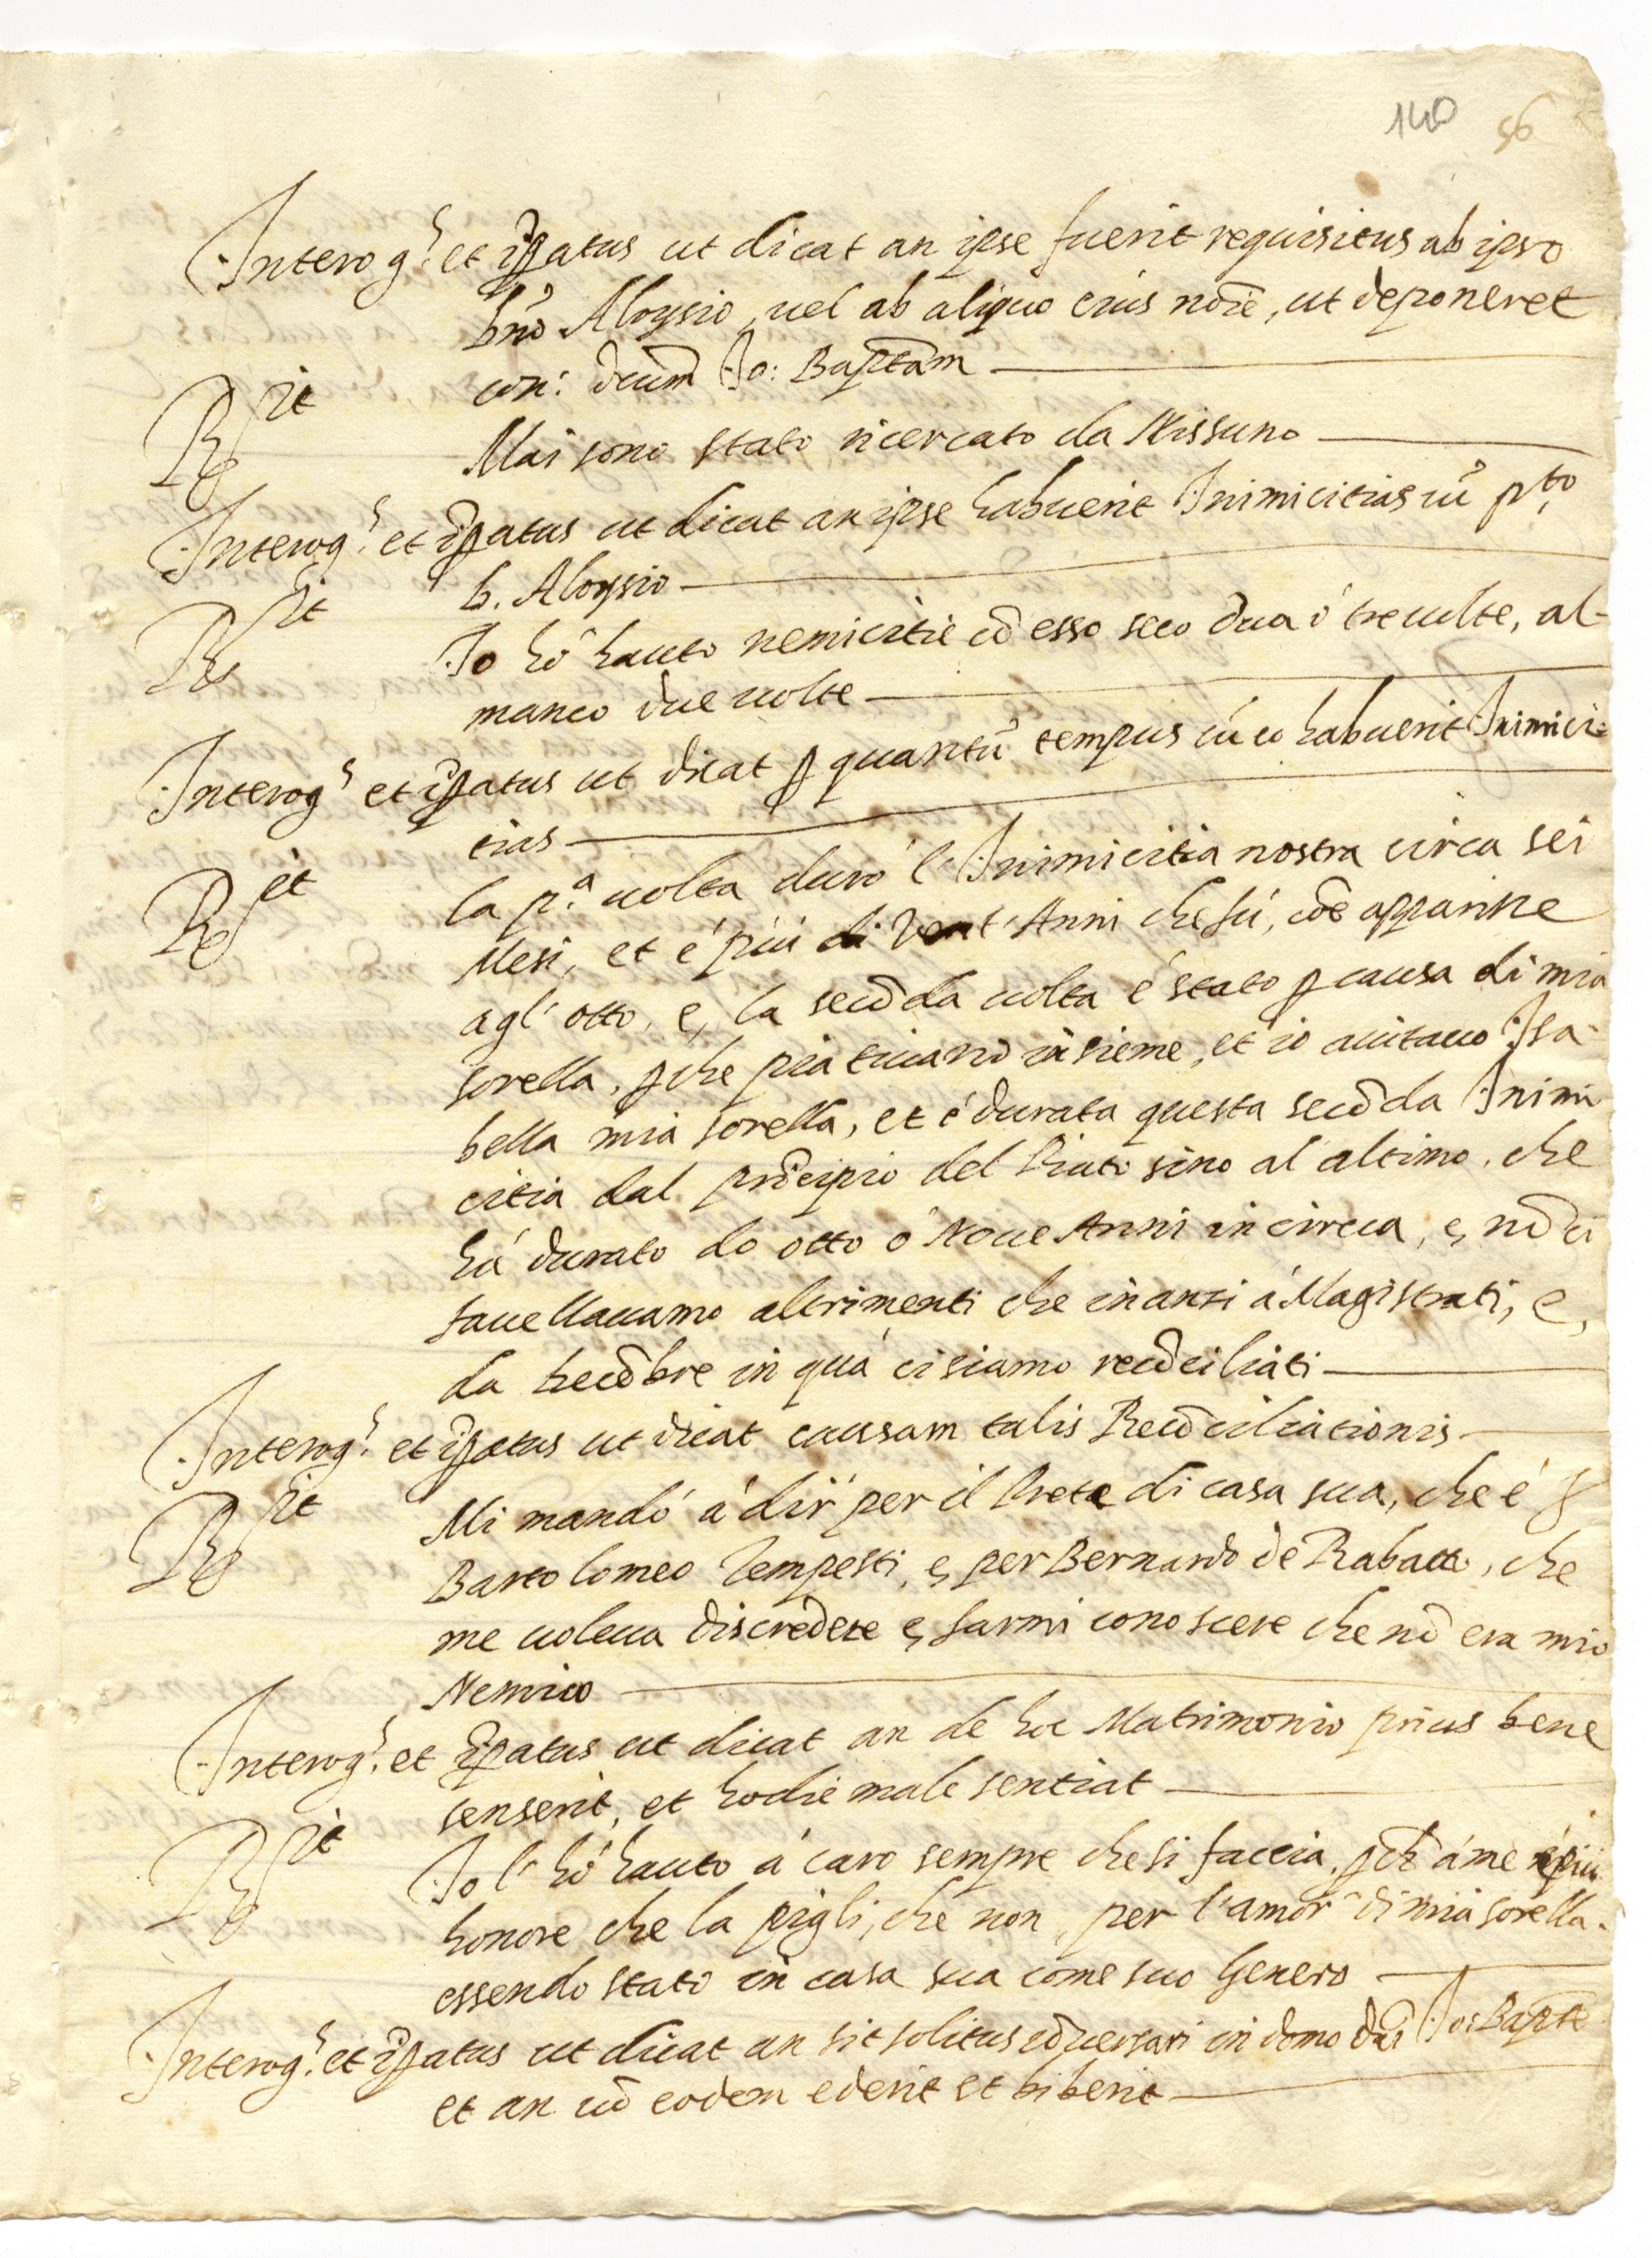 140 56
Interog.s et ip̃atus ut dicat an ipse fuerit requisitus ab ipso
dño Aloysio, uel ab aliquo eius nõie, ut deponeret
con: dictũm Jo: Baptãm
Rit Mai sono stato ricercato da Nissuno
Interog.s et ip̃atus ut dicat an ipse habuerit Inimicitias cũ p.to
d. Aloysio
Rit Io hò hauto nemicitie cõ esso seco dua ò tre uolte, al-
manco due uolte
Interog.s et ip̃atus ut dicat p quantũ tempus cũ eo habuerit Inimici=
tias
Rit la p.a uolta durò l'Inimicitia nostra circa sei
Mesi, et è più di Vent'Anni che fù, cõe apparisce
agl'otto, e, la secõda uolta è stato p causa di mia
sorella, pche piatiuano insieme, et io aiutauo Isa-
bella mia sorella, et è durata questa secõda Inimi
citia dal prĩcipio del Piato sino al ultimo, che
hà durato da otto ò Noue Anni in circa, e, nõ ci
fauellauamo altrimenti che inanzi à Magistrati, e,
da Decẽbre in quà ci siamo recõciliati
Interog.s et ip̃atus ut dicat causam talis Recõciliationis
Rit Mi mandò à dir per il Prete di casa sua, che è
Bartolomeo Tempesti, e, per Bernardo de Rabatta, che
me uoleua discredere e, farmi conoscere che nõ era mio
Nemico
Interog.s et ip̃atus ut dicat an de hoc Matrimonio prius bene
senserit, et hodie male sentiat
Rit Io l'hò hauto à caro sempre che si faccia, pchẽ à me è più
honore che la pigli, che non, per l'amor di mia sorella.
essendo stato in casa sua come suo Genero
Interog.s et ip̃atus ut dicat an sit solitus cõuersari in domo dũi Jo: Bapte
et an cũ eodem ederit et biberit